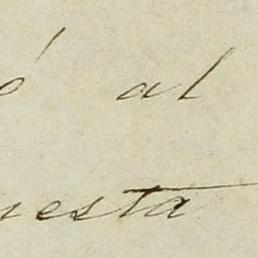 ó al
uesta